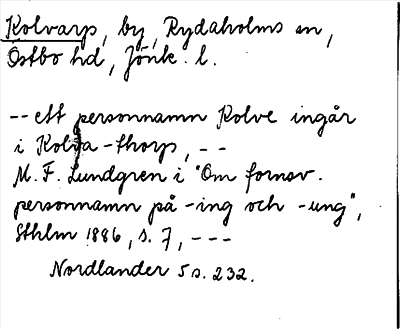 Kolvarp, by, Rydaholms sn,
Östbo hd, Jönk. l.
-- ett personnamn Kolve ingår
i Kolga-thorp, --
M. F. Lundgren i "Om fornsv.
personnamn på -ing och -ung",
Sthlm 1886, s. 7, ---
Nordlander 5 s. 232.